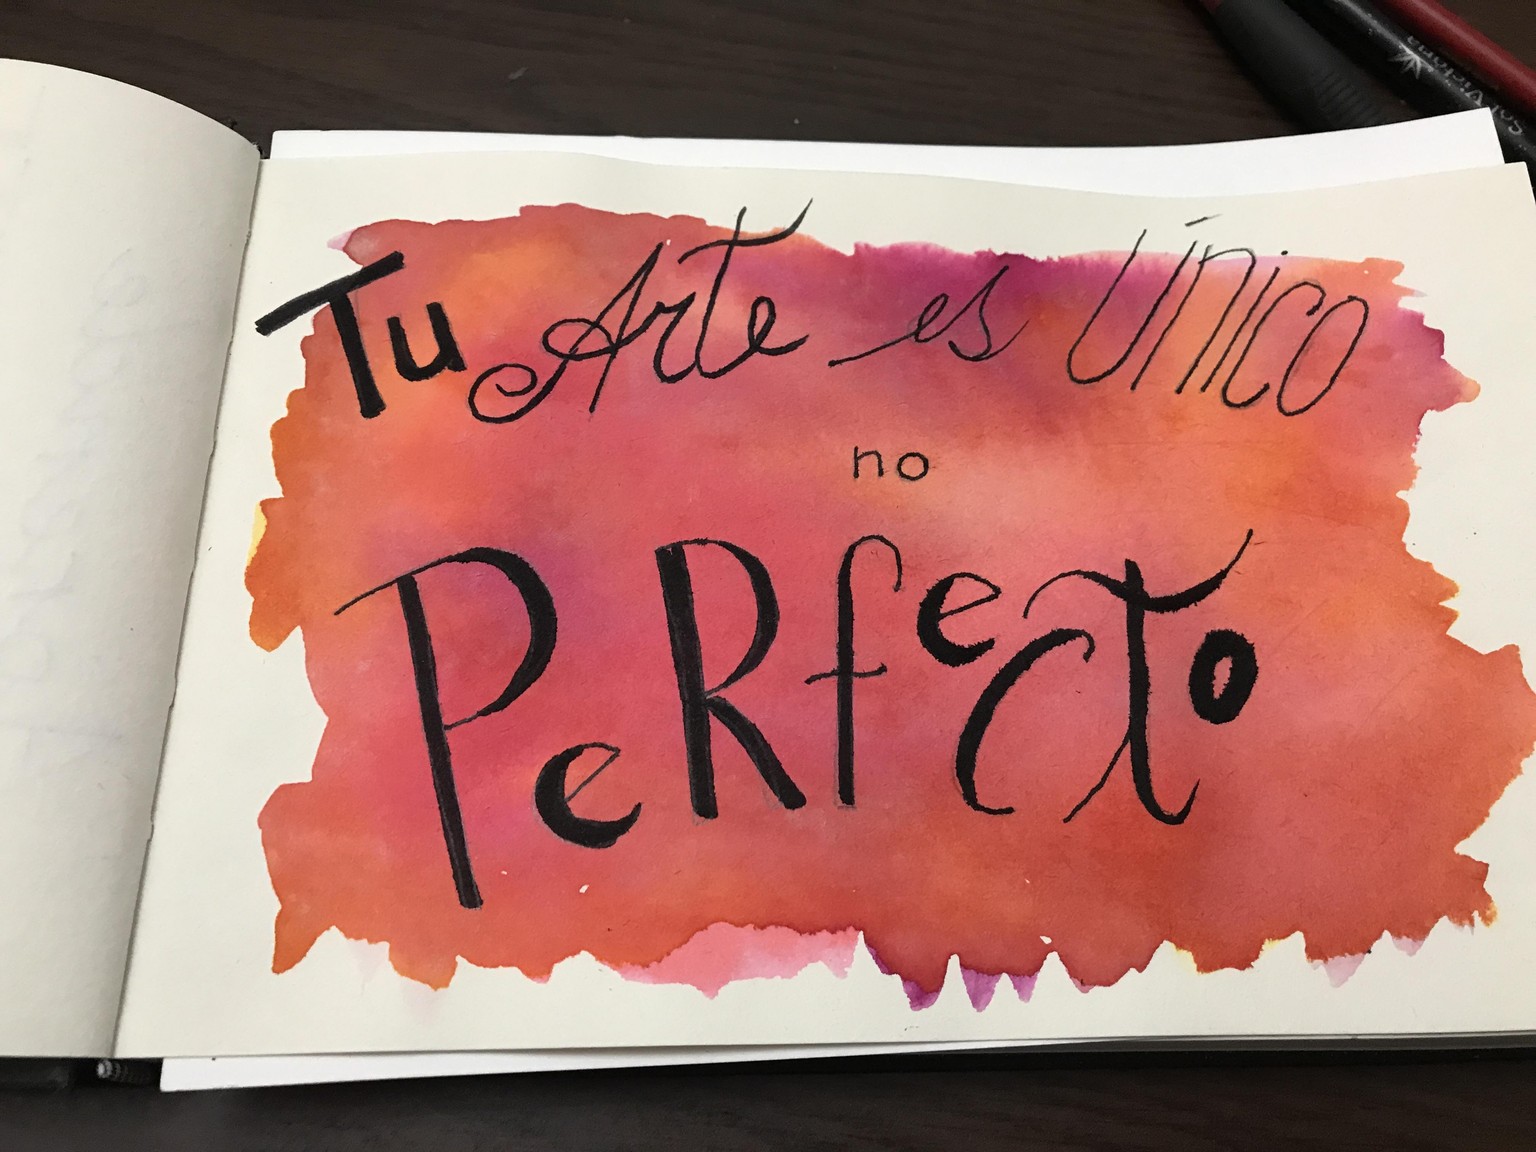 Tu Arte es Único
no
PeRfecto